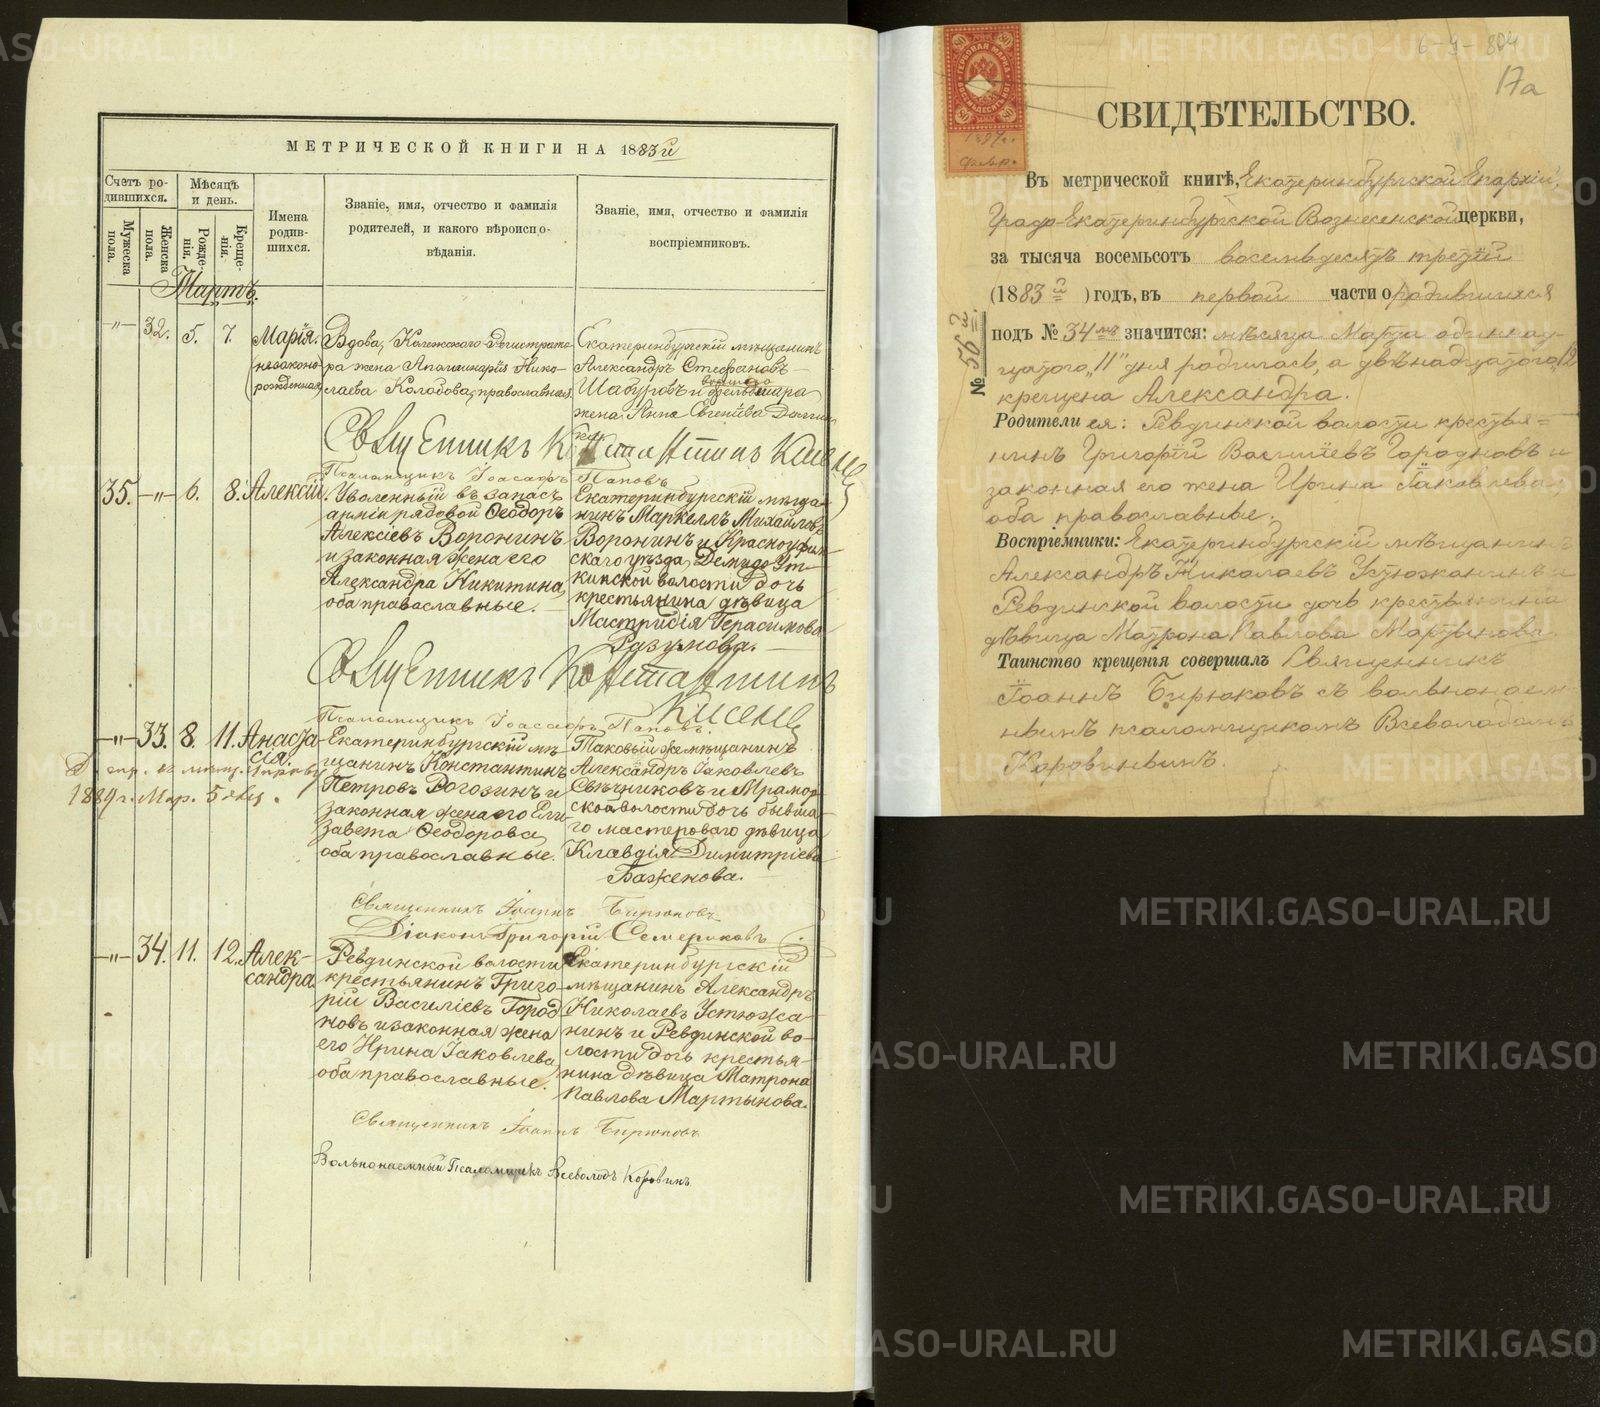 МЕТРИЧЕСКОЙ КНИГИ НА 1883й
Счетъ ро-
дившихся.
Мужеска пола.
Женска пола.
Мѣсяцъ
и день.
Рожде-
нія.
Креще-
нія.
Имена
родив-
шихся.
Званіе, имя, отчество и фамилія
родителей, и какого вѣроиспо-
вѣданія.
Званіе, имя, отчество и фамилія
воспріемниковъ.
Мартъ.
—„— 32. 5. 7. Марія.
(незаконо-
рожденная)
Вдова, Коллежскаго Регистрато-
ра жена Аполлинарія Нико-
лаева Колобова, православная.
Екатеринбургскій мѣщанинъ
Александръ Стефановъ
Шабуровъ и фельдшера
жена Анна Евгеніева
Священникъ
Псаломщикъ Іоасафъ Поповъ
35. —„— 6. 8. Алексій.
Уволенный въ запасъ
арміи рядовой Ѳеодоръ
Алексіевъ Воронинъ
и законная жена его
Александра Никитина,
оба православные.
Екатеринбургскій мѣща-
нинъ Маркеллъ Михайловъ
Воронинъ и Красноуфим-
скаго уѣзда, Демидо-Ут-
кинской волости дочь
крестьянина дѣвица
Мастридія Герасимова
Разумова.
Священникъ Константинъ
Псаломщикъ Іоасафъ Поповъ.
—„— 33. 8. 11. Анаста-
сія.
1889 г. Мар. 5 дня.
Екатеринбургскій мѣ-
щанинъ Константинъ
Петровъ Рогозинъ и
законная жена его Ели-
завета Ѳеодорова,
оба православные.
Таковый же мѣщанинъ
Александръ Іаковлевъ
Свѣчниковъ и Мрамор-
ской волости дочь бывша-
го мастероваго дѣвица
Клавдія Димитріева
Баженова.
Священникъ Іоаннъ Бирюковъ
Діаконъ Григорій Семериковъ
—„— 34. 11. 12. Алек-
сандра.
Ревдинской волости
крестьянинъ Григо-
рій Василіевъ Город-
новъ и законная жена
его Ирина Іаковлева,
оба православные.
Екатеринбургскій
мѣщанинъ Александръ
Николаевъ Устюжа-
нинъ и Ревдинской во-
лости дочь крестья-
нина дѣвица Матрона
Павлова Мартынова.
Священникъ Іоаннъ Бирюковъ
Вольнонаемный Псаломщикъ Всеволодъ Коровинъ
17а
ГЕРБОВАЯ МАРКА
80
СВИДѢТЕЛЬСТВО.
№ 56й.
Въ метрической книгѣ, Екатеринбургской Епархіи,
Градо-Екатеринбургской Вознесенской церкви,
за тысяча восемьсотъ восемьдесятъ третій
(1883й) годъ, въ первой части о родившихся
подъ № 34мъ значится: мѣсяца Марта одиннад-
цатаго „11" дня родилась, а двѣнадцатаго „12
крещена Александра.
Родители ея: Ревдинской волости крестья=
нинъ Григорій Василіевъ Городновъ и
законная его жена Ирина Іаковлева,
оба православные.
Воспріемники: Екатеринбургскій мѣщанинъ
Александръ Николаевъ Устюжанинъ и
Ревдинской волости дочь крестьянина
дѣвица Матрона Павлова Мартынова
Таинство крещенія совершалъ Священникъ
Іоаннъ Бирюковъ съ вольнонаем-
нымъ псаломщикомъ Всеволодомъ
Коровинымъ.
METRIKI.GASO-URAL.RU